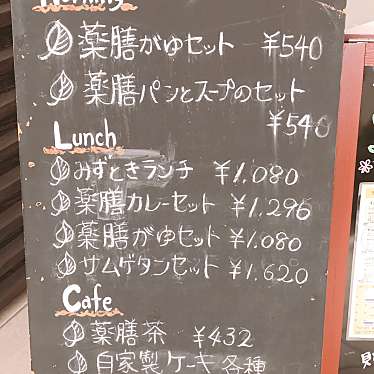 Morning
薬膳がゆセット ¥540
薬膳パンとスープのセット
¥540
Lunch
みずときランチ ¥1.080
薬膳カレーセット ¥1.296
薬膳がゆセット ¥1.080
サムゲタンセット ¥1.620
Cafe
薬膳茶 ¥432
自家製ケーキ各種